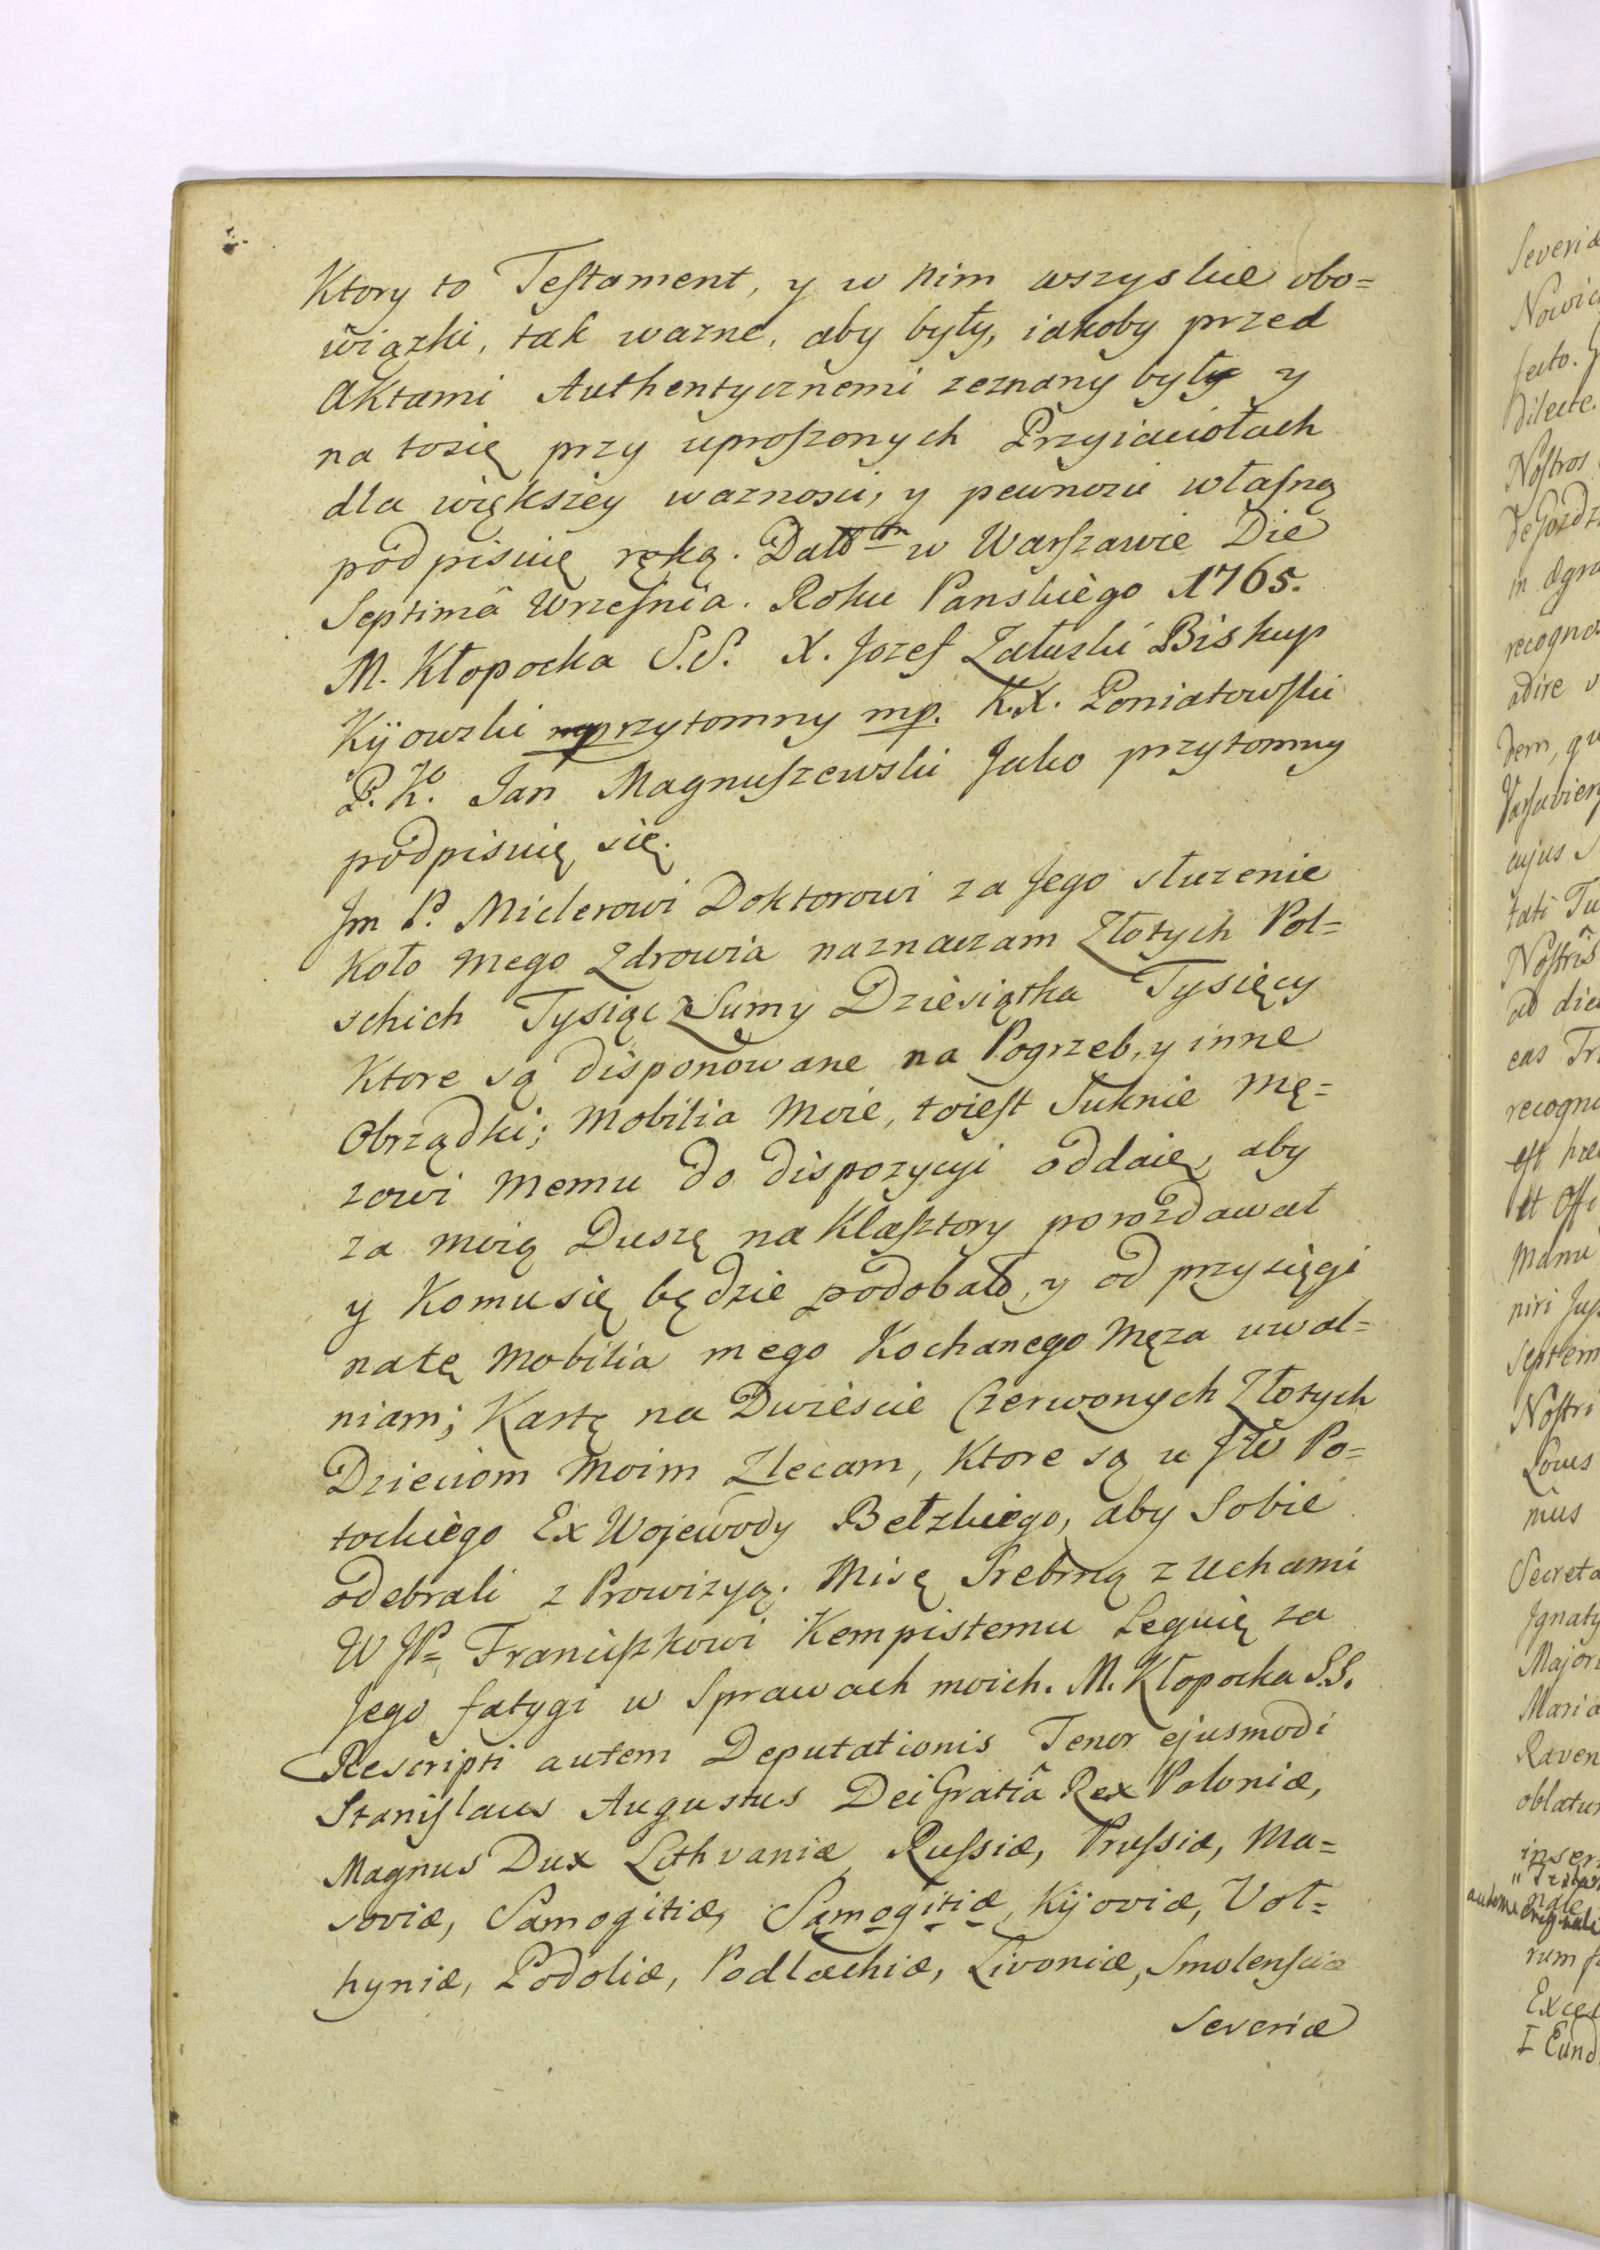 Ktory to Testament, y w nim wszyskie obo=
wiązki, tak wazne, aby były, iakoby przed
Aktami Authentycznemi zeznany były y
na tosię przy uproszonych Przyiaciołach
dla większey waznosci, y pewnosci własną
podpisuię ręką. Datt m w Warszawie Die
Septimâ Wrzesnia. Roku Panskiego 1765.
M. Kłopocka S.S. X. Jozef Załuski Biskup
Kijowski przytomny mp. K.X. Poniatowski
P. K. Jan Magnuszewski Jako przytomny
podpisuię się.
Jm P. Miclerowi Doktorowi za Jego słuzenie
Koło mego Zdrowia naznaczam Złotych Pol=
schich Tysiąc z Sumy Dziesiątka Tysięcy
Ktore są disponowane na Pogrzeb, y inne
Obrządki; Mobilia Moie, toiest Suknie Mę=
zowi Memu do dispozycyi oddaię, aby
za moią Duszę na Klasztory porozdawał
y Komusię będzie podobało, y od przysięgi
natę Mobilia mego Kochanego Męza uwal=
niam; Kartę na Dwiescie Czerwonych Złotych
Dzieciom Moim Zlecam, Ktore są u JW Po=
tockiego Ex Wojewody Bełzkiego, aby Sobie
odebrali z Prowizyą. Misę Srebrną z Uchami
W JP= Franciszkowi Kempistemu Leguię za
Jego fatygi w Sprawach moich. M. Kłopocka S.S.
Rescripti autem Deputationis Tenor ejusmodi
Stanislaus Augustus Dei Gratiâ Rex Poloniæ,
Magnus Dux Lithvaniæ Russiæ, Prussiæ, Ma=
soviæ, Samogitiæ, Samogitiæ, Kijoviæ, Vol=
hyniæ, Podoliæ, Podlachiæ, Livoniæ, Smolensciæ
Severiæ